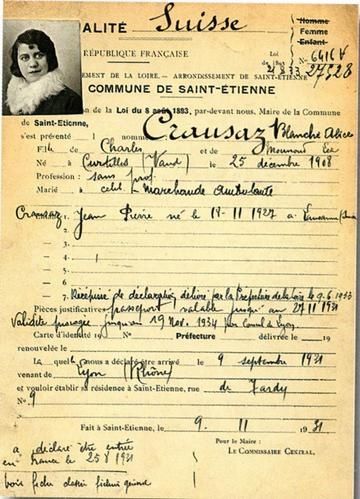 NATIONALITÉ Suisse
Homme
Femme
Enfant
RÉPUBLIQUE FRANÇAISE
Loi
6416 V
21.8.33
27528
DÉPARTEMENT DE LA LOIRE. — ARRONDISSEMENT DE SAINT-ÉTIENNE
COMMUNE DE SAINT-ÉTIENNE
de la Loi du 8 août 1893, par-devant nous, Maire de la Commune
de Saint-Etienne,
s'est présenté 1 nommé Crausaz Blanche Alice
Fil de Charles et de
Né à Curtilles (Vaud) le 25 décembre 1908
Profession : sans prof.
Marié à célib. Marchande ambulante
Crausaz 1. Jean Pierre né le 18-11 1927 à Lausanne
2.
3.
4.
5.
6.
7. Récépissé de déclaration délivré par la Préfecture de la Loire le 9.6.1933
Pièces justificatives passeport valable jusqu'au 27/11 1931
Validité prorogée jusqu'au 19 Nov. 1934 par Consul de Lyon
Carte d'identité N° Préfecture délivrée le 19
renouvelée le
La quelle nous a déclaré être arrivé le 9 septembre 1931
venant de Lyon (Rhône)
et vouloir établir sa résidence à Saint-Étienne, rue de Tardy
N° 9
Fait à Saint-Étienne, le 9. 11 1931
Pour le Maire :
LE COMMISSAIRE CENTRAL.
a déclaré être entrée
en France le 25 8 1931